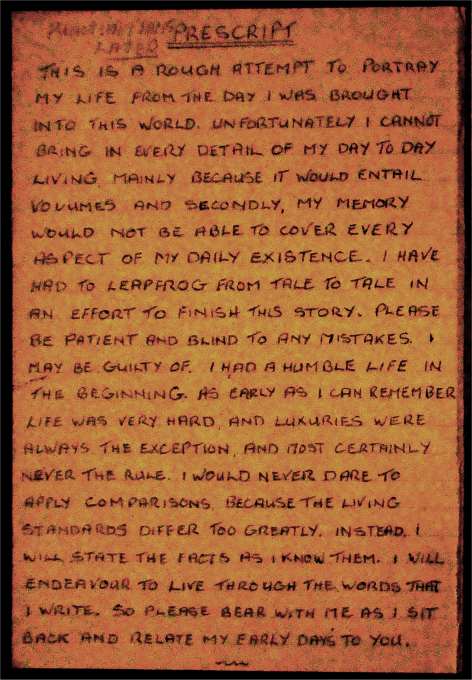 PRESCRIPT
LATER
THIS IS A ROUGH ATTEMPT TO PORTRAY
MY LIFE FROM THE DAY I WAS BROUGHT
INTO THIS WORLD. UNFORTUNATELY I CANNOT
BRING IN EVERY DETAIL OF MY DAY TO DAY
LIVING, MAINLY BECAUSE IT WOULD ENTAIL
VOLUMES AND SECONDLY, MY MEMORY
WOULD NOT BE ABLE TO COVER EVERY
ASPECT OF MY DAILY EXISTENCE. I HAVE
HAD TO LEAPFROG FROM TALE TO TALE IN
AN EFFORT TO FINISH THIS STORY. PLEASE
BE PATIENT AND BLIND TO ANY MISTAKES. I
MAY BE GUILTY OF. I HAD A HUMBLE LIFE IN
THE BEGINNING. AS EARLY AS I CAN REMEMBER
LIFE WAS VERY HARD, AND LUXURIES WERE
ALWAYS THE EXCEPTION, AND MOST CERTAINLY
NEVER THE RULE. I WOULD NEVER DARE TO
APPLY COMPARISONS, BECAUSE THE LIVING
STANDARDS DIFFER TOO GREATLY. INSTEAD, I
WILL STATE THE FACTS AS I KNOW THEM. I WILL
ENDEAVOUR TO LIVE THROUGH THE WORDS THAT
I WRITE. SO PLEASE BEAR WITH ME AS I SIT
BACK AND RELATE MY EARLY DAYS TO YOU.